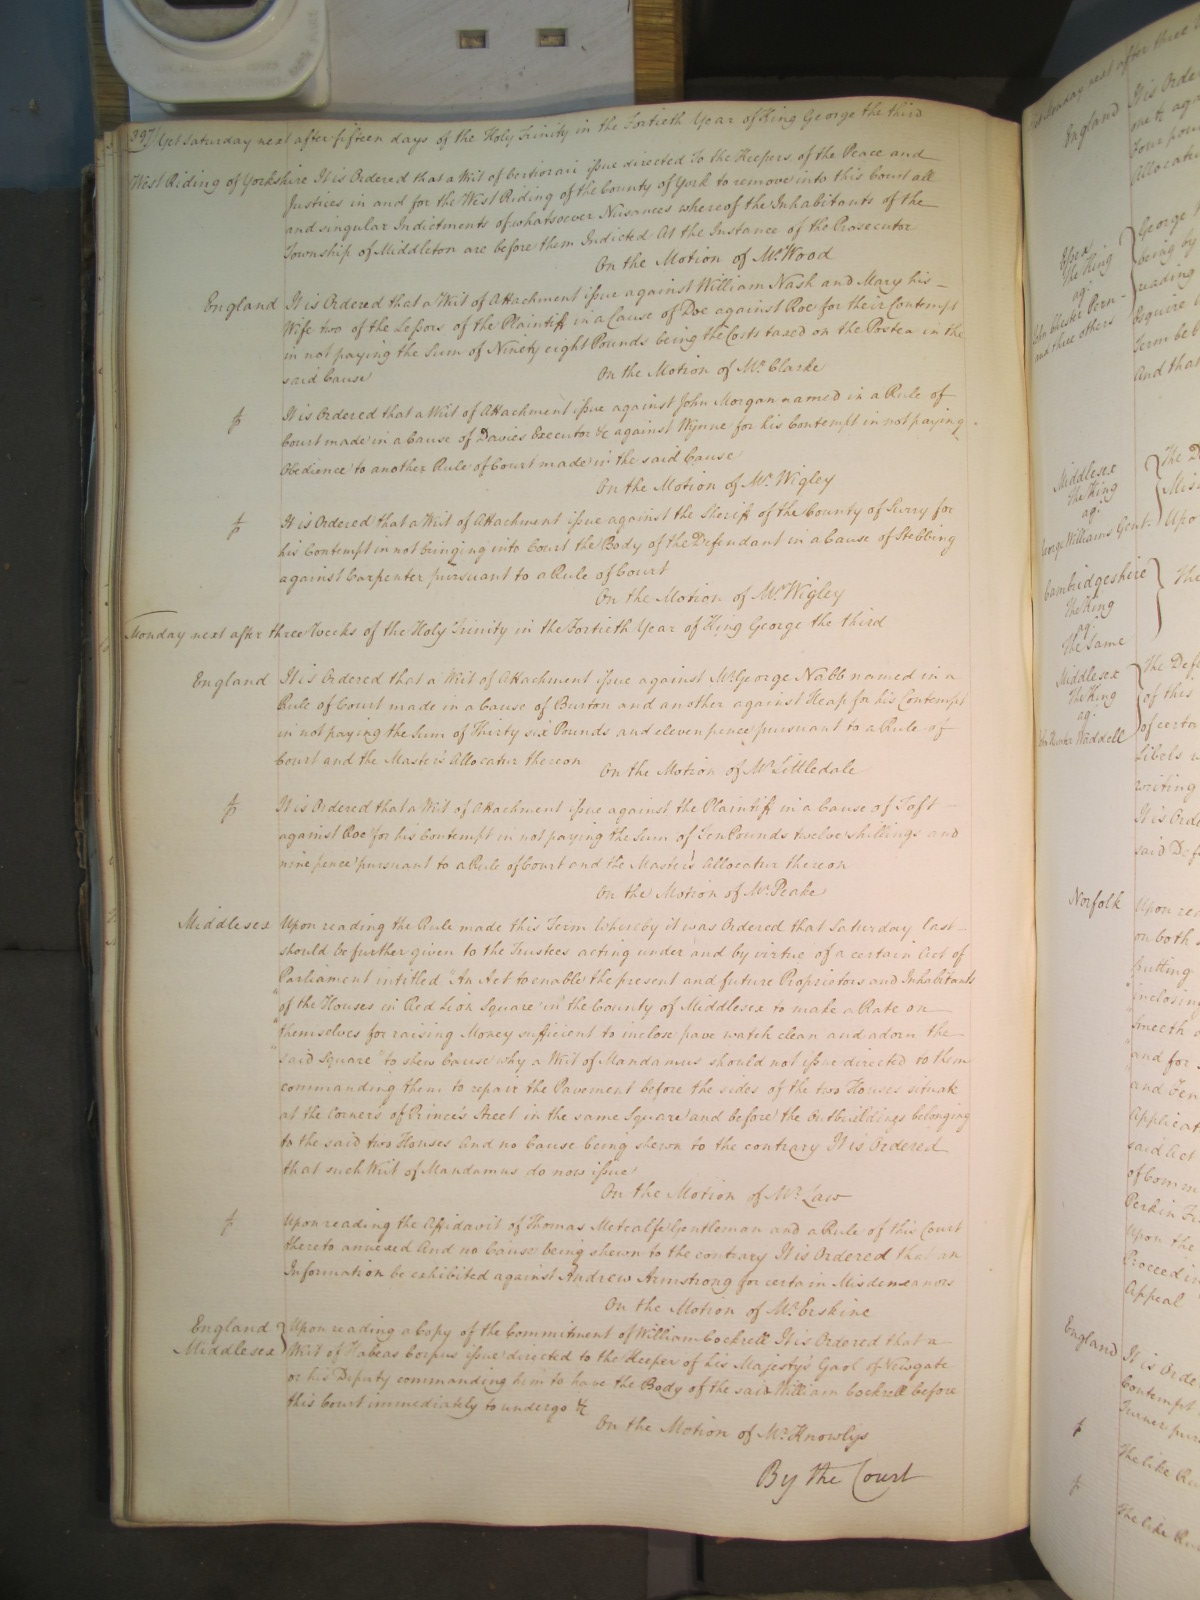 397 Yet Saturday next after fifteen days of the Holy Trinity in the Fortieth Year of King George the third
West Riding of Yorkshire It is Ordered that a Writ of Certiorari issue directed To the Keepers of the Peace and
Justices in and for the West Riding of the County of York to remove into this Court all
and singular Indictments of whatsoever Nusances whereof the Inhabitants of the
Township of Middleton are before them Indicted At the Instance of the Prosecutor
On the Motion of Mr. Wood
England It is Ordered that a Writ of Attachment issue against William Nash and Mary his
Wife two of the Lessors of the Plaintiff in a Cause of Doe against Roe for their Contempt
in not paying the Sum of Ninety eight Pounds being the Costs taxed on the Postea in the
said Cause
On the Motion of Mr. Clarke
It is Ordered that a Writ of Attachment issue against John Morgan named in a Rule of
Court made in a Cause of Davies Executor &c against Wynne for his Contempt in not paying
Obedience to another Rule of Court made in the said Cause
On the Motion of Mr. Wigley
It is Ordered that a Writ of Attachment issue against the Sheriff of the County of Surry for
his Contempt in not bringing into Court the Body of the Defendant in a Cause of Stebbing
against Carpenter pursuant to a Rule of Court
On the Motion of Mr. Wigley
Monday next after three Weeks of the Holy Trinity in the Fortieth Year of King George the third
England It is Ordered that a Writ of Attachment issue against Mr. George Nabb named in a
Rule of Court made in a Cause of Burton and another against Heap for his Contempt
in not paying the Sum of Thirty six Pounds and eleven pence pursuant to a Rule of
Court and the Master's Allocatur thereon
On the Motion of Mr. Littledale
It is Ordered that a Writ of Attachment issue against the Plaintiff in a Cause of Toft
against Roe for his Contempt in not paying the Sum of Ten Pounds twelve shillings and
nine pence pursuant to a Rule of Court and the Master's Allocatur thereon
On the Motion of Mr. Peake
Middlesex Upon reading the Rule made this Term Whereby it was Ordered that Saturday last
should be further given to the Trustees acting under and by virtue of a certain Act of
Parliament intitled "An Act to enable the present and future Proprietors and Inhabitants
"of the Houses in Red Lion Square in the County of Middlesex to make a Rate on
"themselves for raising Money sufficient to inclose pave watch clean and adorn the
"said Square" to shew Cause why a Writ of Mandamus should not issue directed to them
commanding them to repair the Pavement before the sides of the two Houses situate
at the Corners of Princes Street in the same Square and before the Outbuildings belonging
to the said two Houses And no Cause being shewn to the contrary It is Ordered
that such Writ of Mandamus do now issue
On the Motion of Mr. Law
Upon reading the Affidavit of Thomas Metcalfe Gentleman and a Rule of this Court
thereto annexed And no Cause being shewn to the contrary It is Ordered that an
Information be exhibited against Andrew Armstrong for certain Misdemeanors
On the Motion of Mr. Erskine
England
Middlesex
Upon reading a Copy of the Commitment of William Cockrell It is Ordered that a
Writ of Habeas Corpus issue directed to the Keeper of his Majesty's Gaol of Newgate
or his Deputy commanding him to have the Body of the said William Cockrell before
this Court immediately to undergo &c
On the Motion of Mr. Knowlys
By the Court
Monday next after three
England
It is Orde
one &c aga
Four pou
Allocatu
Essex
The King
agt.
and three others
George
being by
reading
Esquire
Term be
And that
Middlesex
The King
agt.
George Williams Gent.
The D
Upon
Cambridgeshire
The King
agt.
The Same
The
Middlesex
The King
agt.
Waddell
The Def
of this
of certa
Libels
writing
It is Orde
said Def
Norfolk
Upon rea
on both
"inclosing
"and for
"and
Applicat
said Act
of Comm
Upon the
Proceedin
Appeal
England
It is Orde
Contempt
Turner pur
The like Ru
The like Rul